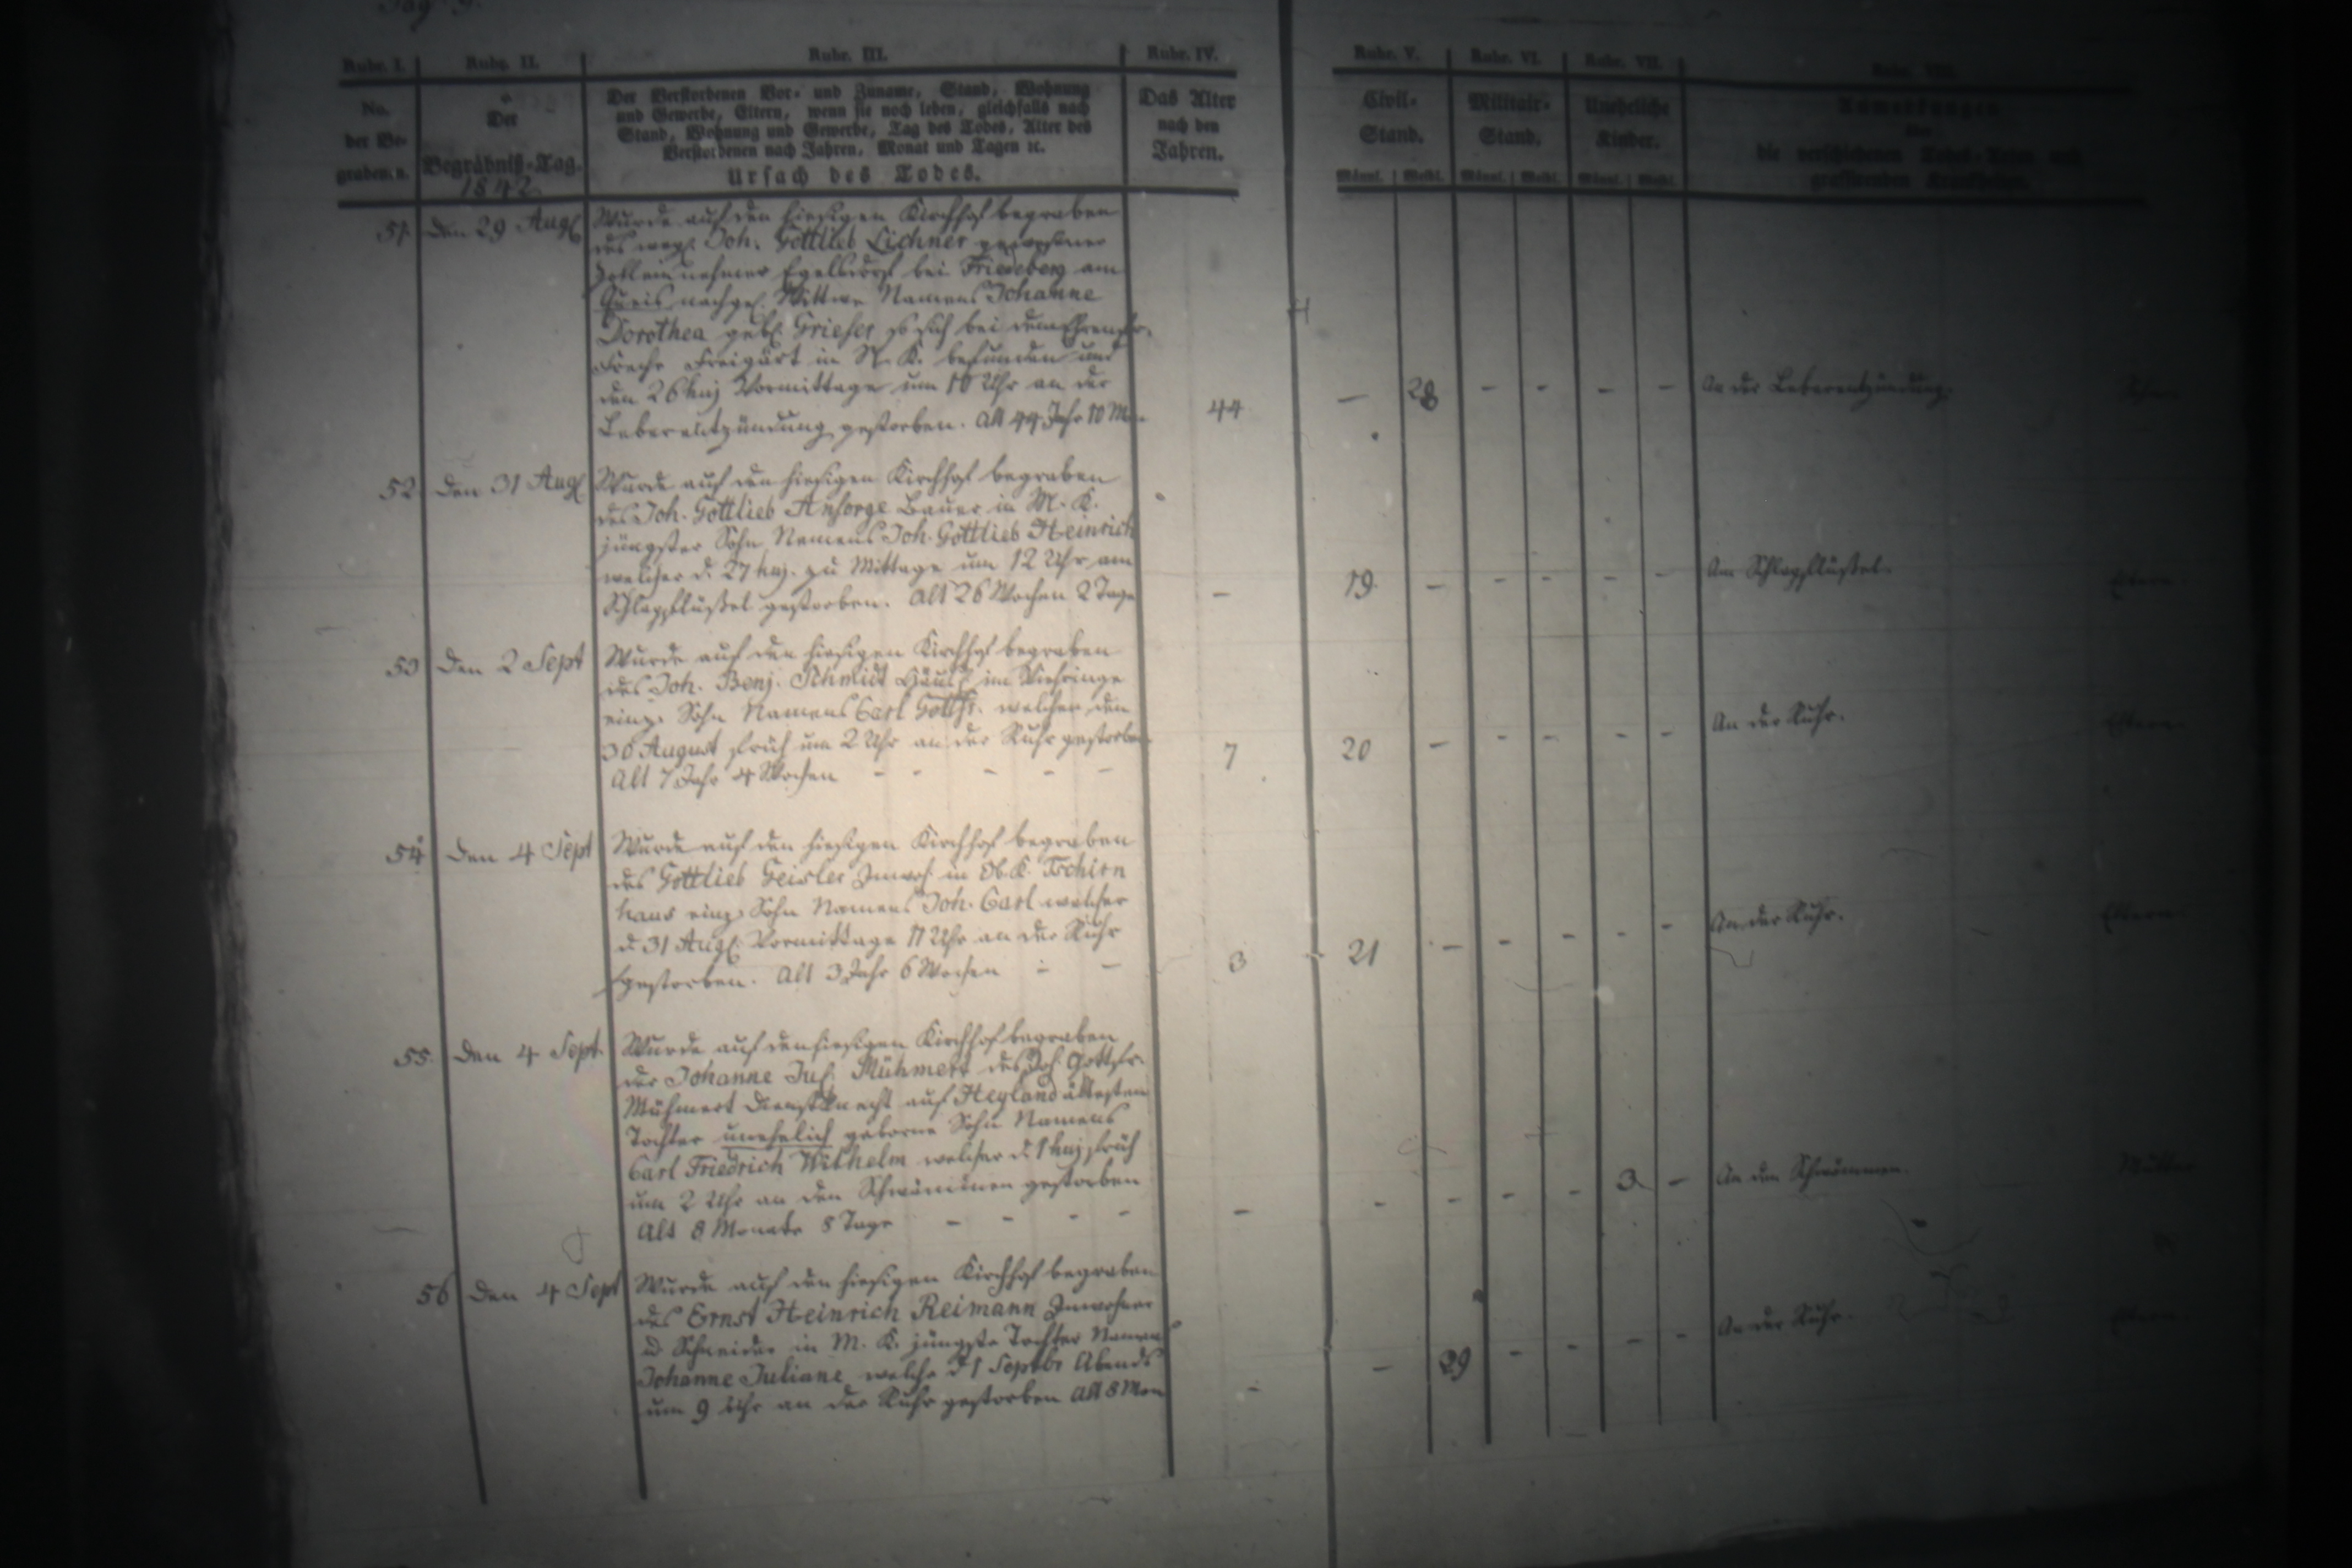 Pag 9.
Rubr. I.
Rubr. II.
Rubr. III.
Rubr. IV.
Rubr. V.
Rubr. VI.
Rubr. VII.
Rubr. VIII.
No.
der Be-
grabenen.
Der
Begräbniß-Tag.
1842
Der Verstorbenen Vor- und Zuname, Stand, Wohnung
und Gewerbe, Eltern, wenn sie noch leben, gleichfalls nach
Stand, Wohnung und Gewerbe, Tag des Todes, Alter des
Verstorbenen nach Jahren, Monat und Tagen ꝛc.
Ursach des Todes.
Das Alter
nach den
Jahren.
Civil-
Stand.
Militair-
Stand.
Uneheliche
Kinder.
Anmerkungen
die verschiedenen Todes-Arten und
grassirenden Krankheiten.
Männl. Weibl. Männl. Weibl. Männl. Weibl.
51. Den 29 Aug
Wurde auf den hiesigen Kirchhof begraben
des weg. Joh. Gottlieb Lichner gewesener
Zolleinnehmer Egelsdorf bei Friedeberg am
Queis nachgel. Wittwe Namens Johanne
Dorothea geb. Grieser so sich bei dem
Freigärt in N. K. befunden und
den 26 huj Vormittage um 10 Uhr an der
Leberentzündung gestorben. Alt 44 Jahr 10 Mon
44 — 28 - - - - An der Leberentzündung.
52. Den 31 Aug
Wurde auf den hiesigen Kirchhof begraben
des Joh. Gottlieb Ansorge Bauer in M. K.
jüngster Sohn Namens Joh. Gottlieb Heinrich
welcher d. 27 huj. zu Mittage um 12 Uhr am
Schlagflüßel gestorben. Alt 26 Wochen 2 Tage
— 19. - - - - - Am Schlagflüßel. Eltern
53 Den 2 Sept
Wurde auf den hiesigen Kirchhof begraben
des Joh. Benj. Schmidt Häusl. im Viehringe
einz. Sohn Namens Carl Gottfr. welcher den
30 August früh um 2 Uhr an der Ruhr gestorben
Alt 7 Jahr 4 Wochen - - - - -
7 20 - - - - - An der Ruhr. Eltern
54 Den 4 Sept
Wurde auf den hiesigen Kirchhof begraben
des Gottlieb Geisler Inwoh. in Ob. K. Tschirn
haus einz. Sohn Namens Joh. Carl welcher
d. 31 Aug. Vormittage 11 Uhr an der Ruhr
gestorben. Alt 3 Jahr 6 Wochen - -
3 21 - - - - - An der Ruhr. Eltern
55. Den 4 Sept.
Wurde auf den hiesigen Kirchhof begraben
der Johanne Jul. Mühmert des Joh. Gottfr.
Mühmert Dienstknecht auf Heyland ältesten
Tochter unehelich geborne Sohn Namens
Carl Friedrich Wilhelm welcher d. 1 huj früh
um 2 Uhr an den Schwämmen gestorben
Alt 8 Monate 8 Tage - - - -
— - - - - 3 - An den Schwämmen. Mutter
56 Den 4 Sept
Wurde auf den hiesigen Kirchhof begraben
des Ernst Heinrich Reimann Inwohner
u Schneider in M. K. jüngste Tochter Namens
Johanne Juliane welche d 1 Septbr Abends
um 9 Uhr an der Ruhr gestorben Alt 8 Mon
- — 29 - - - - An der Ruhr. Eltern